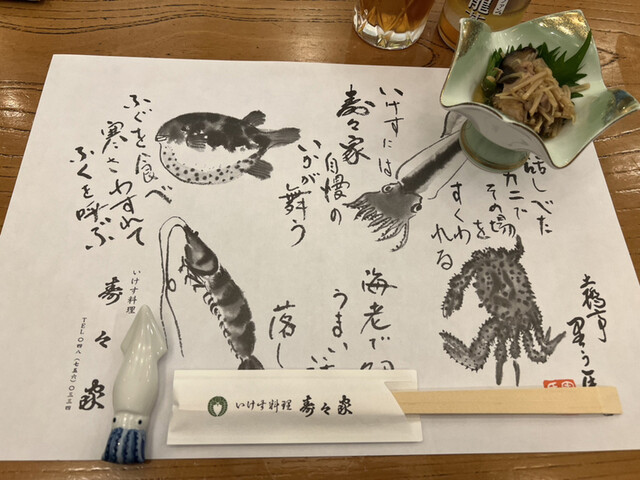 いけすには
寿々家
自慢の
いかが舞う
ふぐを食べ
寒さわすれて
ふくを呼ぶ
カニで
その場を
すくわれる
海老で
うまい
落し
いけす料理
寿々家
TEL 048(756)0334
いけす料理 寿々家